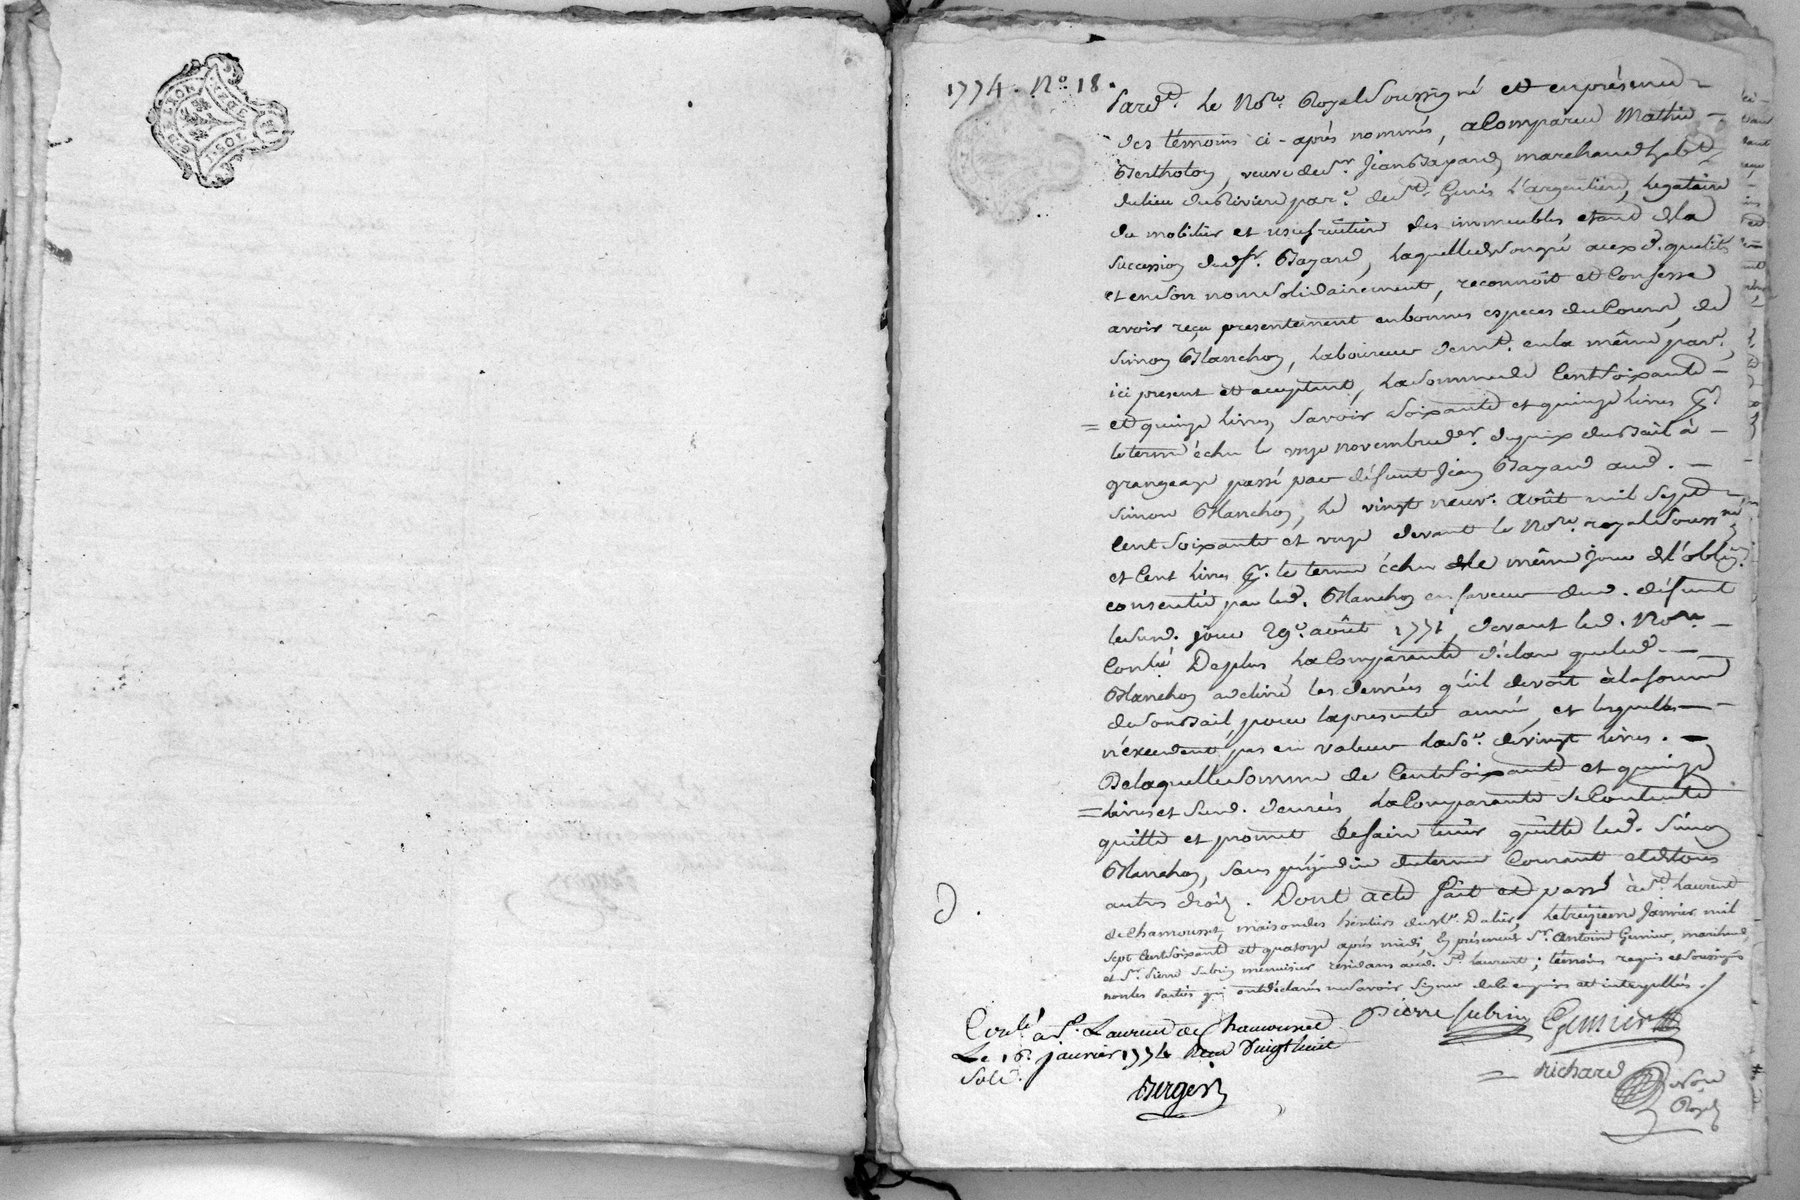 GN. DE LYON
1774. N.º 18.
Pardt. le Nore. Royal soussigné et en présence
des témoins ci-après nommés, a comparue Mathie
Bertholon, veuve de sr. Jean Bazard, marchand habt
du lieu du Rivier parse. de St. Genis l'argentiere, legataire
du mobilier et usufruitiere des immeubles etant de la
succession dud. sr. Bazard, laquelle de son gré auxd. qualités
et en son nom solidairement, reconnoit et confesse
avoir reçu presentement en bonnes especes du cours, de
Simon Blanchon, laboureur demt. en la même parse.
ici present et acceptant, la somme de cent soixante
et quinze livres, savoir soixante et quinze livres pr.
le terme échu le onze novembre der. du prix du bail à
grangeage passé par défunt Jean Bazard aud.
Simon Blanchon, le vingt neuf. août mil sept
cent soixante et onze devant le Nore. royal soussné
et cent livres pr. le terme échu le même jour de l'oblig.
consentie par led. Blanchon en faveur dud. défunt
le susd. jour 29e. août 1771, devant led. Nore.
Conlé De plus la comparante déclare que led.
Blanchon a delivré les denrées qu'il devoit à la forme
de son bail, pour la presente année, et lesquelles
n'excedent pas en valeur la soe. de vingt livres.
De laquelle somme de cent soixante et quinze
livres et susd. denrées la comparante se contente
quitte et promet de faire tenir quitte led. Simon
Blanchon, sans préjudice du terme courant et de tous
autres droits. Dont acte fait et passé à St. Laurent
de Chamousset, maison des héritiers du sr. Dalier, le treizieme Janvier mil
sept cent soixante et quatorze après midi, en présence de Sr. Antoine Gernier, marchand,
et Sr. Pierre Subrin menuisier residans aud. St. laurent; témoins requis et soussignés
non les parties qui ont déclarés ne savoir signer de ce enquises et interpellés.
Pierre Subrin Gernier
Conlé à St. Laurent de Chamousset
Le 16. janvier 1774 Reçu Vingt huit
Sols.
richard Nore
Royal